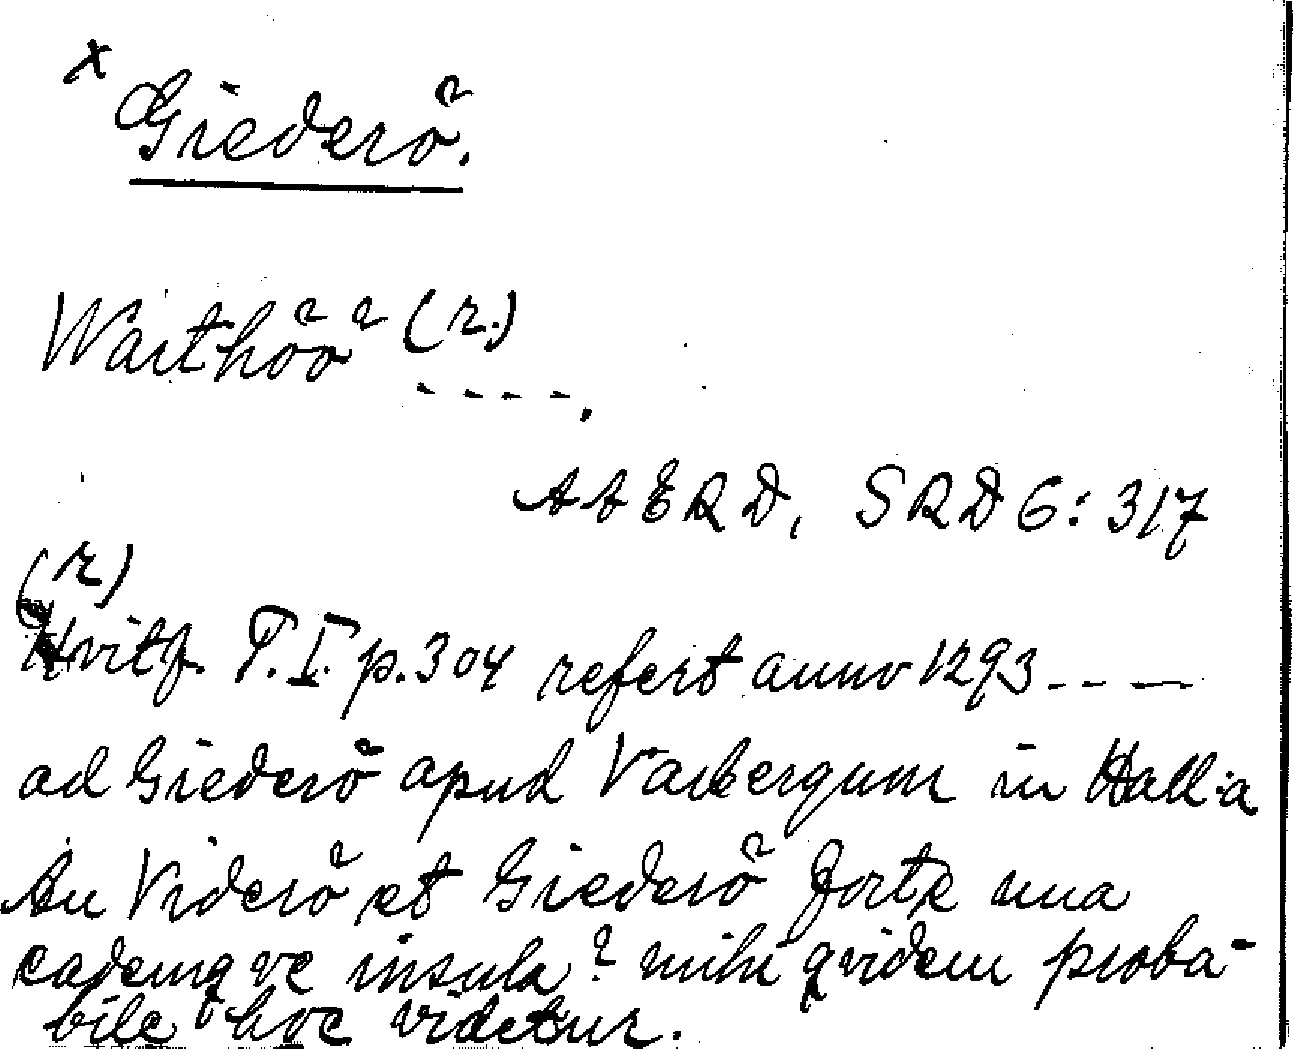 x
Giederö.
Warthöö (r.)
- - - - .
AAERD, SRD 6: 317
(r)
Hvitf. T. I. p. 304 refert anno 1293 - - —
ad Giederö apud Varbergum in Hallia
An Viderö et Giederö forte una
eademqve insula? mihi qvidem proba-
bile hoc videtur.